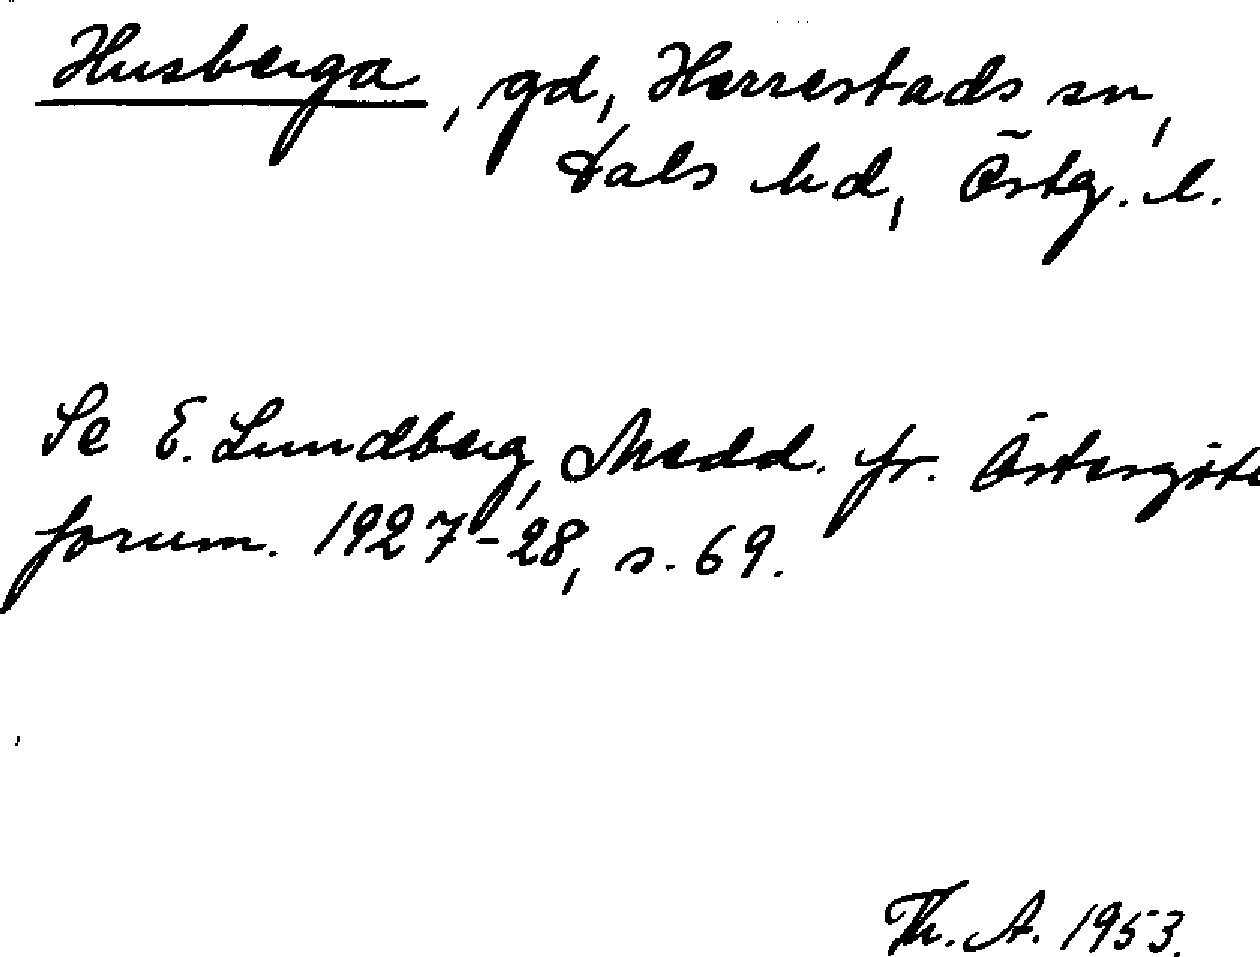 Husberga, gd, Herrestads sn,
Dals hd, Östg. l.
Se E. Lundberg, Medd. fr. Östergötl
forum. 1927-28, s. 69.
Th. A. 1953.